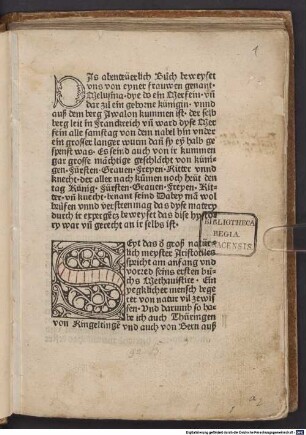 1
DIs abentüerlich Bůch beweyset
vns von eyner frauwen genant
Melusina·dye do ein Merfein·vñ
dar zů ein geborne künigin·vnnd
auß dem berg Awalon kummen ist·der sel
berg leit in Franckreich vñ ward dyse Mer
fein alle samstag von dem nabel hin vnder
ein grosser langer wurm dañ sy ey halb ge
spenst was·Es seind auch von ir kummen
gar grosse mächtige geschlächt von küni-
gen·Fürsten·Grauen·Freyen·Ritter vnnd
knecht·der aller nach kümen noch heüt den
tag Künig·Fürsten·Grauen·Freyen·Rit-
ter·vñ knecht·benant seind Dabey mā wol
brüfen vnnd verstenmag das dyse matery
durch ir expergētz beweyset das dise hystory
war vñ gerecht an ir selbs ist·
BIBLIOTHECA
REGIA
MONACENSIS
SEyt das ď groß natür
lich meyster Aristotiles
spricht am anfang vnd
vorred seins ersten bůchs
Methauisice·Ein
yegklicher mensch bege
ret von natur vil zewis
sen·Vnd darumb so ha
be ich auch Thüringen
von Ringeltingē vnd auch von Bern auß